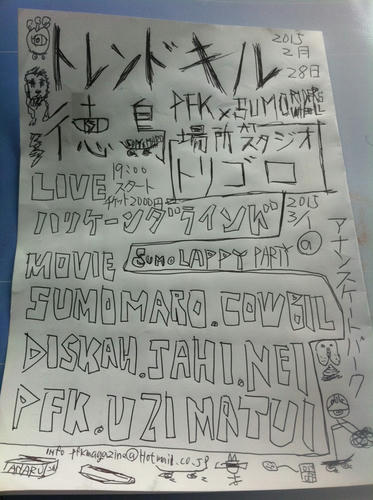 2015
2月
28日
トレンドキル
徳島
PFK × SUMO
場所 スタジオ
トリゴロ
LIVE
19:00
スタート
チケット2000円
ハリケーングラインド
2015
3/1
@
アナンスケートパーク
SUMO LAPPY PARTY
MOVIE
SUMOMARO.COWBIL
DISKAH.JAHI.NEI
PFK.UZIMATUI
info pfkmagazine@Hotmail.co.jp